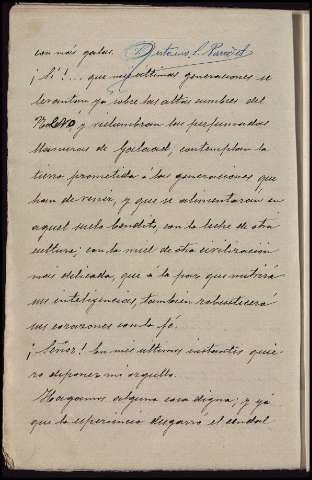 con más galas.
¡Sí!... que mis últimas generaciones se
levantan ya sobre las altas cumbres del
y vislumbran las perfumadas
llanuras de Galaad, contemplan la
tierra prometida á las generaciones que
han de venir, y que se alimentaran en
aquel suelo bendito, con la leche de otra
cultura; con la miel de otra civilización
más delicada, que á la par que nutrirá
sus inteligencias, tambien robustecerá
sus corazones con la fé.
¡Señor! En mis ultimos instantes quie-
ro deponer mi orgullo.
Hagamos alguna cosa digna; y ya
que la esperanza desgarró el cendal